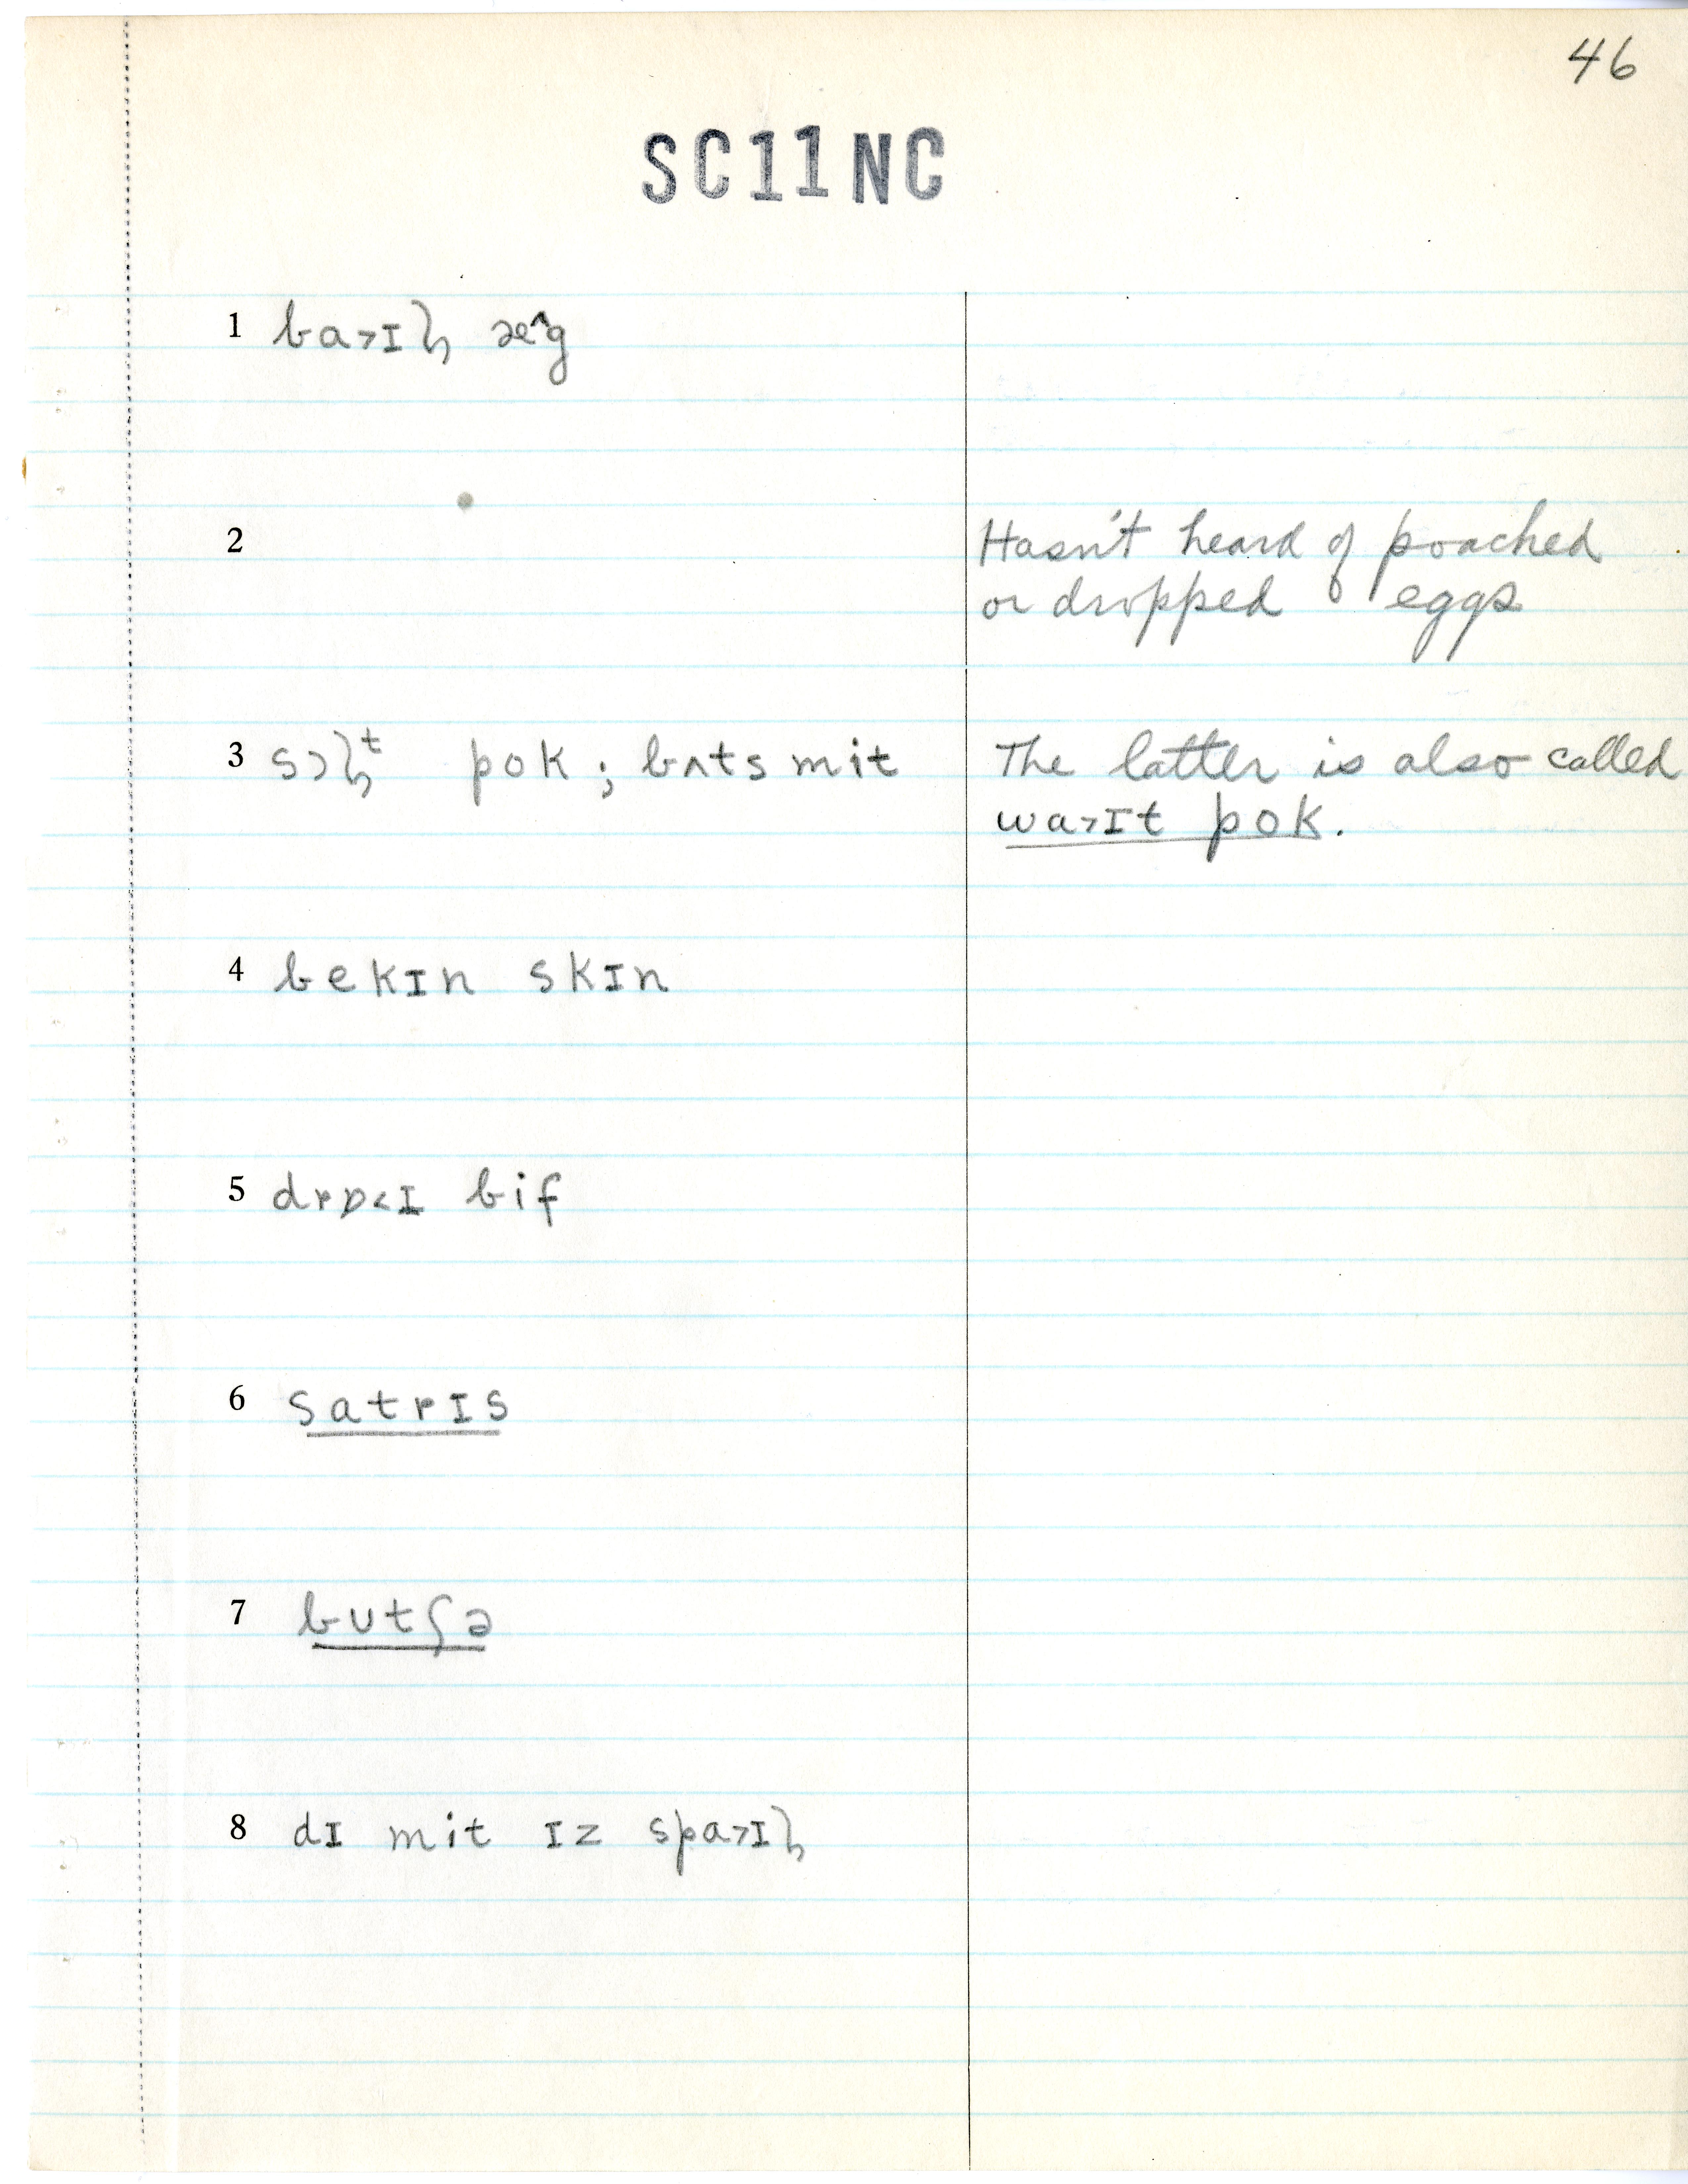 46
SC11NC
1 ba>ɪɮ æ^g
2 Hasn't heard of poached
or dropped eggs
3 sɔɮᵗ pok; bʌts mit The latter is also called
wa>ɪt pok.
4 bekɪn skɪn
5 drɒ<ɪ bif
6 satrɪs
7 butʃə
8 dɪ mit ɪz spa>ɪɮ